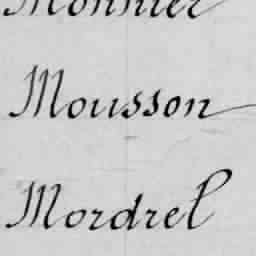 Monnier
Mousson
Mordrel